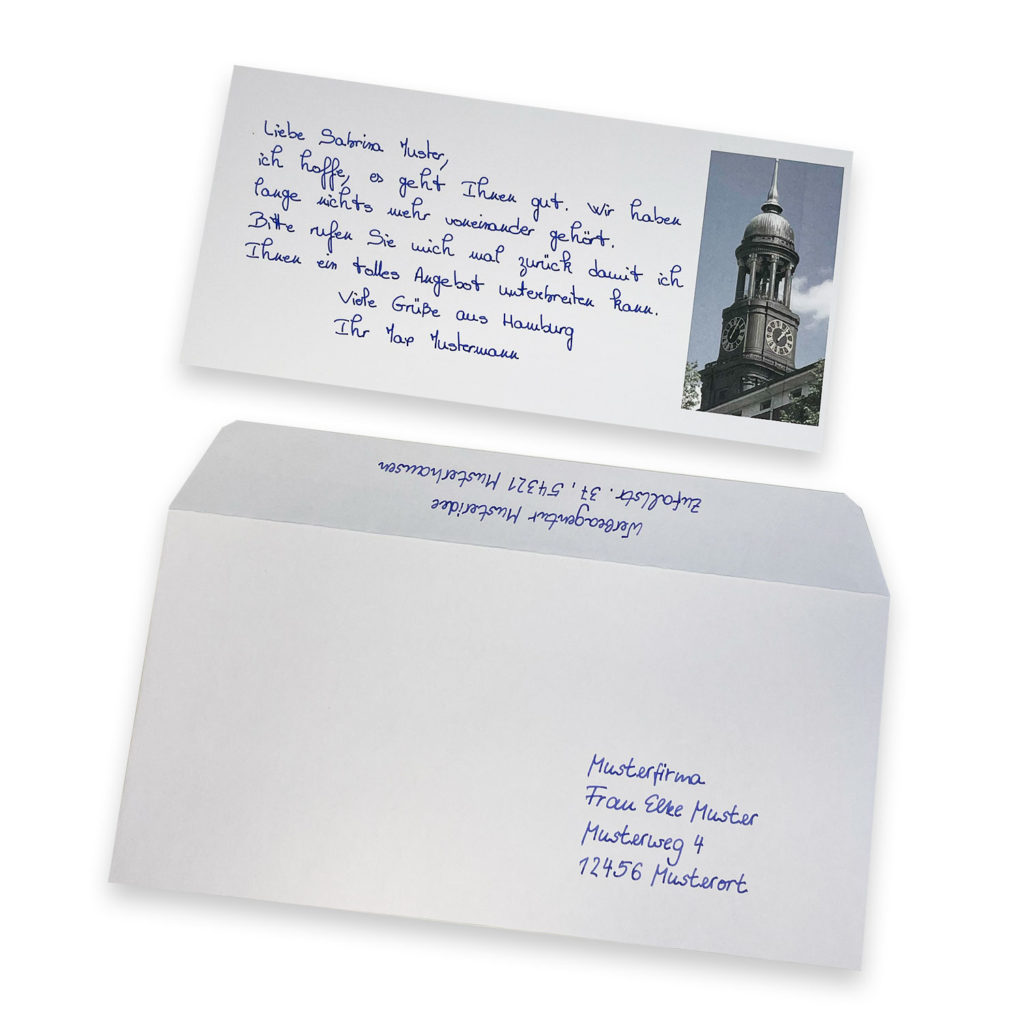 Liebe Sabrina Muster,
ich hoffe, es geht Ihnen gut. Wir haben
lange nichts mehr voneinander gehört.
Bitte rufen Sie mich mal zurück damit ich
Ihnen ein tolles Angebot unterbreiten kann.
Viele Grüße aus Hamburg
Ihr Max Mustermann
Werbeagentur Musteridee
Zufallstr. 37, 54321 Musterhausen
Musterfirma
Frau Elke Muster
Musterweg 4
12456 Musterort